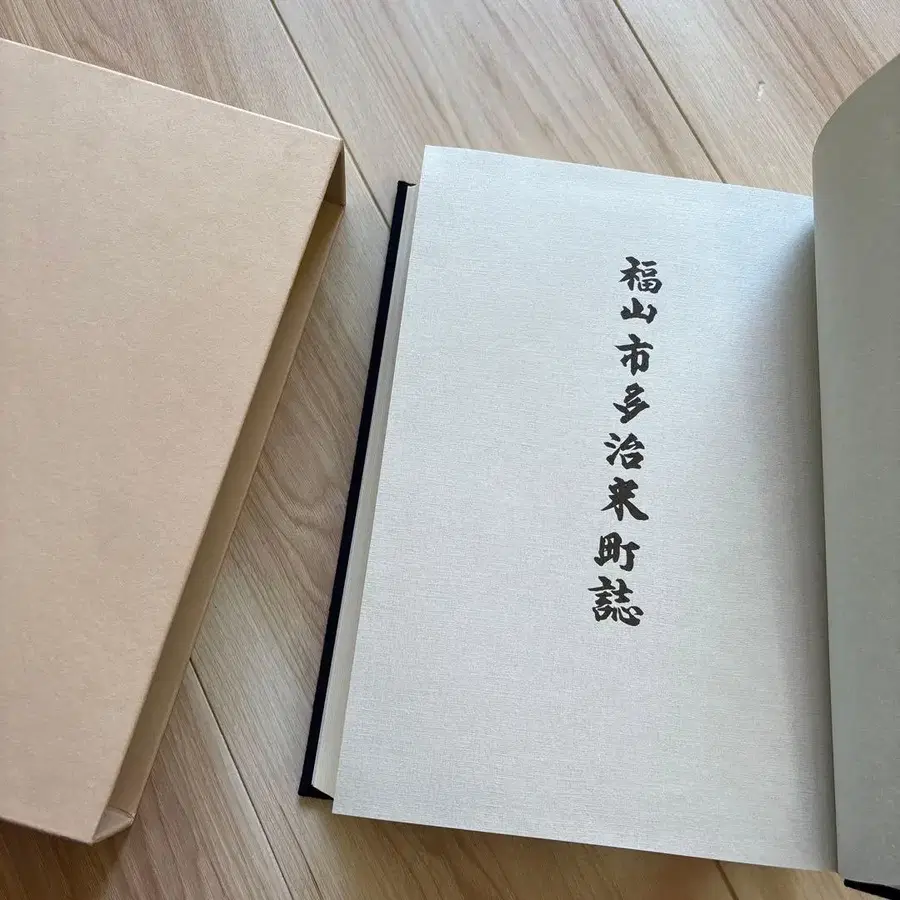 福山市多治米町誌